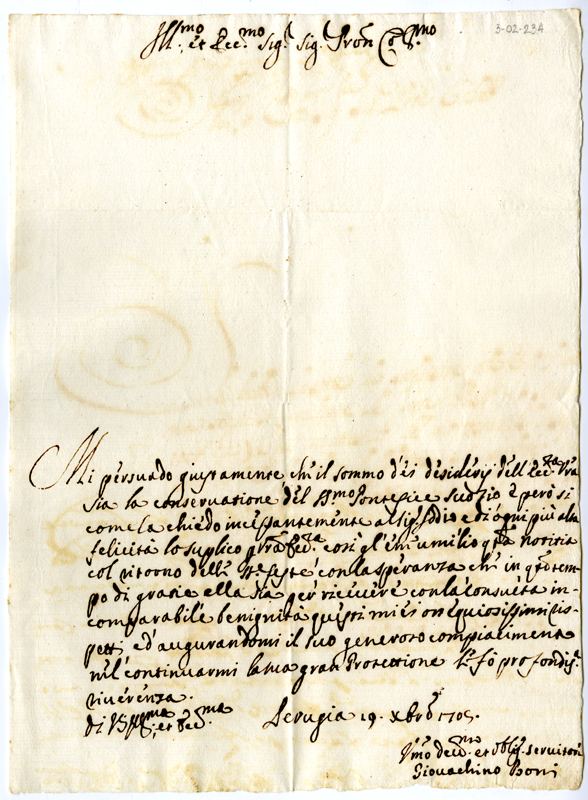 3-02-234
Ill.mo et Ecc.mo Sig.r Sig.r Pron Col.mo
Mi persuado giustamente, che il sommo dei desiderij dell'Ecc.za Vra
sia la conservatione del B.mo Pontefice suo Zio e però si
come la chiedo incessantemente al Sig.r Iddio e di ogni più alta
felicità lo suplico p V.ra Ecc.za così gl'e n'umilio q.ta notitia
col ritorno delle S.te feste con la speranza che in q.to tem-
po di gratie ella sia per ricevere con la consueta in-
comparabile benignità questi miei ossequiosissimi ris-
petti ed augurandomi il suo generoso compiacimento
nel continuarmi la sua gran Protettione le fò profondis.a
riverenza.
Di V. Ill.ma et Ecc.ma Perugia 19. Xbre 1705.
Vmo dev.mo et obl.o servitore
Giovachino Boni